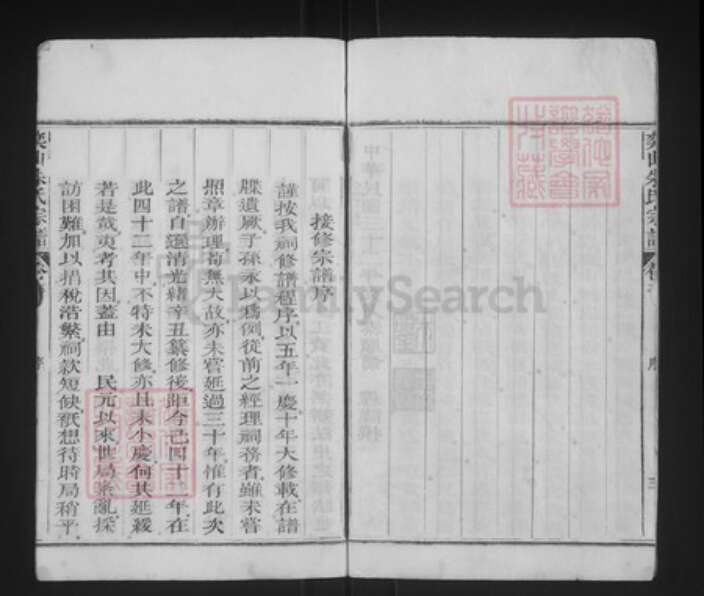 接修宗譜序
謹按我祠修譜程序以五年一慶十年大修載在譜
牒遺厥子孫永以為例從前之經理祠務者雖未嘗
照章辦理苟無大故亦未嘗延過三十年惟有此次
之譜自遜清光緒辛丑纂修後距今已四十二年在
此四十二年中不特未大修亦且未小慶何其延緩
若是哉夷考其因蓋由 民元以來世局紊亂採
訪困難加以捐稅浩繁祠款短缺祇想待時局稍平
朱氏宗譜
序
三
朱氏宗譜
序
FamilySearch